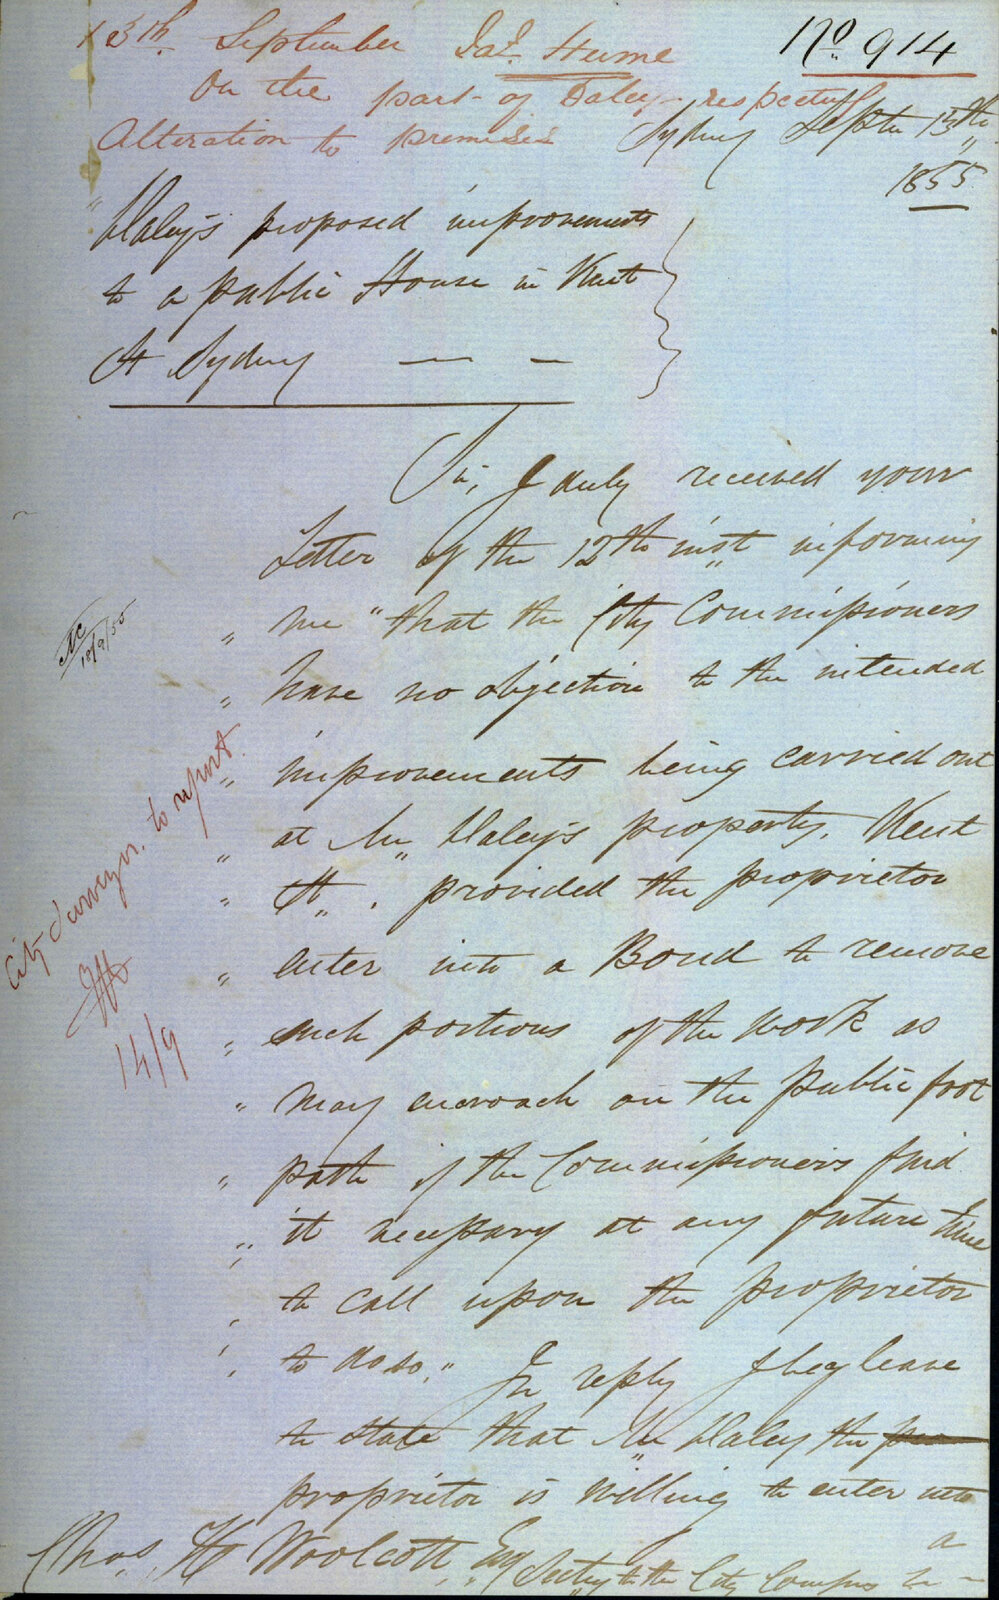 13th September Jas. Hume No. 914
On the part of Daley respecting
Alteration to premises
Sydney Septr 13th
1855
Daley's proposed improvements
to a public House in Kent
St Sydney — -
Sir, I duly received your
Letter of the 12th inst informing
" me "that the City Commissioners
" have no objection to the intended
" improvements being carried out
" at Mr Daley's property. Kent
" St. provided the proprietor
" enter into a Bond to remove
" such portions of the work as
" may encroach on the public foot
" path if the Commissioners find
" it necessary at any future time
" to call upon the proprietor
" to do so." In reply I beg leave
to state that Mr Daley the
proprietor is willing to enter into
a
Chas. H Woolcott, Esq Sectry to the City Comrs
18/9/55
City Surveyor. to report.
14/9